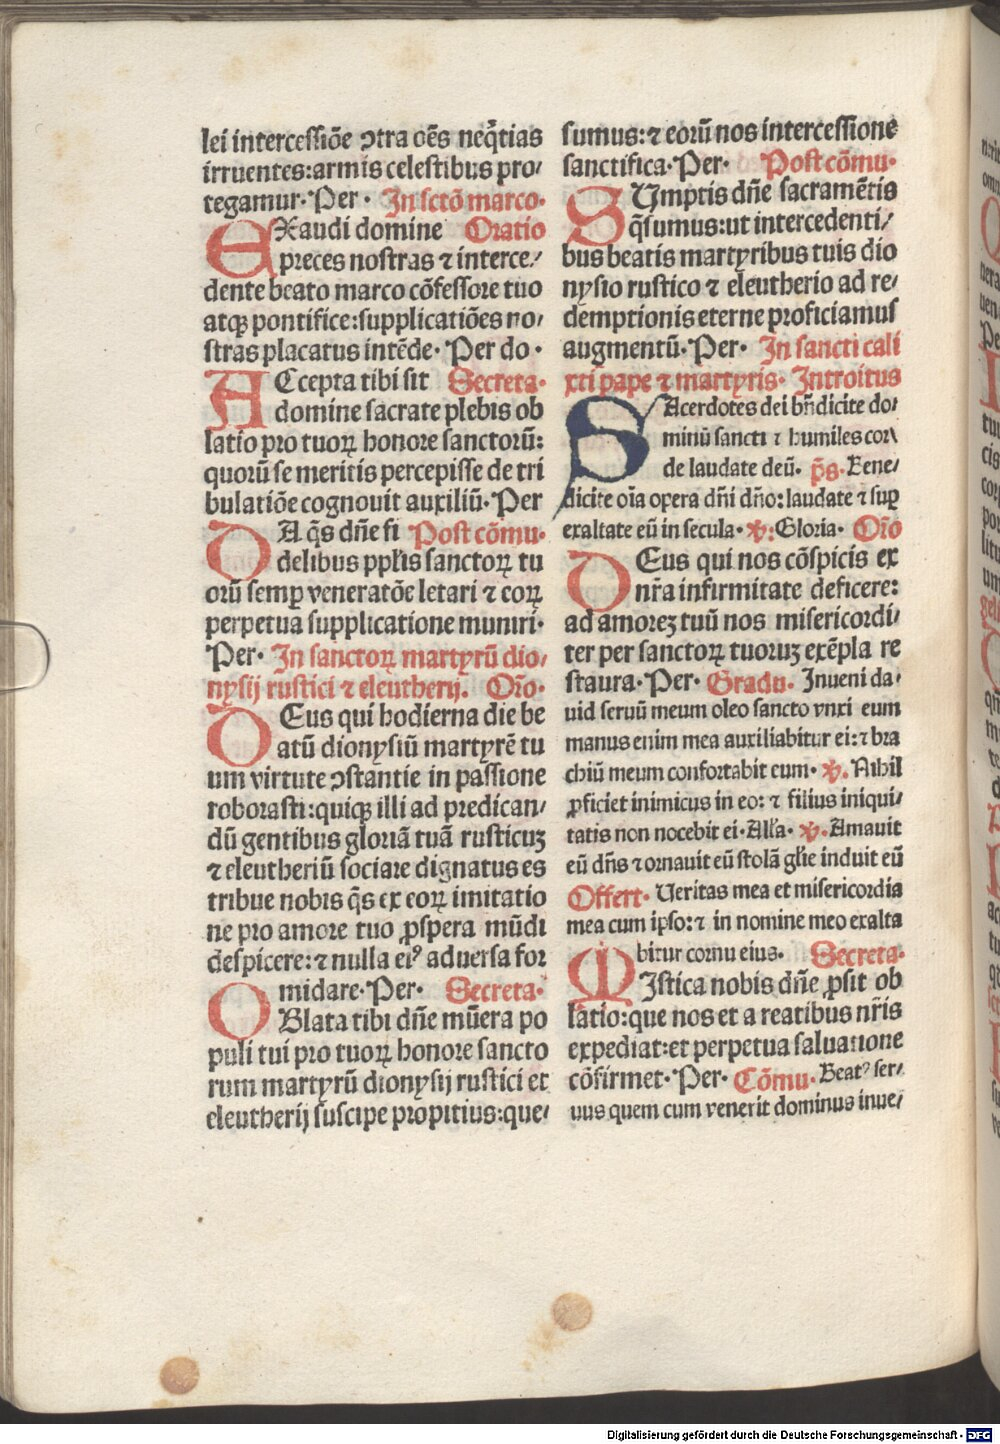 lei intercessiōe ɔtra oēs neq̄tias
irruentes:armis celestibus pro⸗
tegamur. Per. In sctō marco.
EXaudi domine Oratio
preces nostras ⁊ interce⸗
dente beato marco cōfessore tuo
atqꝫ pontifice:supplicatiōes no⸗
stras placatus intēde. Per do.
ACcepta tibi sit Secreta.
domine sacrate plebis ob
latio pro tuoꝝ honore sanctorū:
quorū se meritis percepisse de tri
bulatiōe cognouit auxiliū. Per
DA q̄s dn̄e fi Post cōmu.
delibus ppl̄is sanctoꝝ tu
orū semꝑ veneratōe letari ⁊ eoꝝ
perpetua supplicatione muniri.
Per. In sanctoꝝ martyrū dio⸗
nysij rustici ⁊ eleutherij. Or̄o.
DEus qui hodierna die be
atū dionysiū martyrē tu
um virtute ɔstantie in passione
roborasti:quiqꝫ illi ad predican⸗
dū gentibus gloriā tuā rusticuꝫ
⁊ eleutheriū sociare dignatus es
tribue nobis q̄s ex eoꝝ imitatio
ne pro amore tuo ꝓspera mūdi
despicere:⁊ nulla eiꝰ aduersa for
midare. Per. Secreta.
OBlata tibi dn̄e mūera po
puli tui pro tuoꝝ honore sancto
rum martyrū dionysij rustici et
eleutherij suscipe propitius:que⸗
sumus:⁊ eorū nos intercessione
sanctifica. Per. Post cōmu.
SUmptis dn̄e sacramētis
q̄sumus:ut intercedenti⸗
bus beatis martyribus tuis dio
nysio rustico ⁊ eleutherio ad re⸗
demptionis eterne proficiamus
augmentū. Per. In sancti cali
xti pape ⁊ martyris. Introitus
SAcerdotes dei bn̄dicite do⸗
minū sancti ⁊ humiles cor⸗
de laudate deū. p̄s. Bene⸗
dicite oīa opera dn̄i dn̄o:laudate ⁊ suꝑ
exaltate eū in secula. ℣: Gloria. Or̄o
DEus qui nos cōspicis ex
nr̄a infirmitate deficere:
ad amoreꝫ tuū nos misericordi⸗
ter per sanctoꝝ tuoruꝫ exēpla re
staura. Per. Gradu. Inueni da⸗
uid seruū meum oleo sancto vnxi eum
manus enim mea auxiliabitur ei:⁊ bra
chiū meum confortabit eum. ℣. Nihil
ꝓficiet inimicus in eo: ⁊ filius iniqui⸗
tatis non nocebit ei. All'a. ℣. Amauit
eū dn̄s ⁊ ornauit eū stolā gl'ie induit eū
Offert. Ueritas mea et misericordia
mea cum ipso:⁊ in nomine meo exalta
bitur cornu eius. Secreta.
MIstica nobis dn̄e ꝓsit ob
latio:que nos et a reatibus nr̄is
expediat:et perpetua saluatione
cōfirmet. Per. Cōmu. Beatꝰ ser⸗
uus quem cum venerit dominus inue⸗
Digitalisierung gefördert durch die Deutsche Forschungsgemeinschaft - DFG